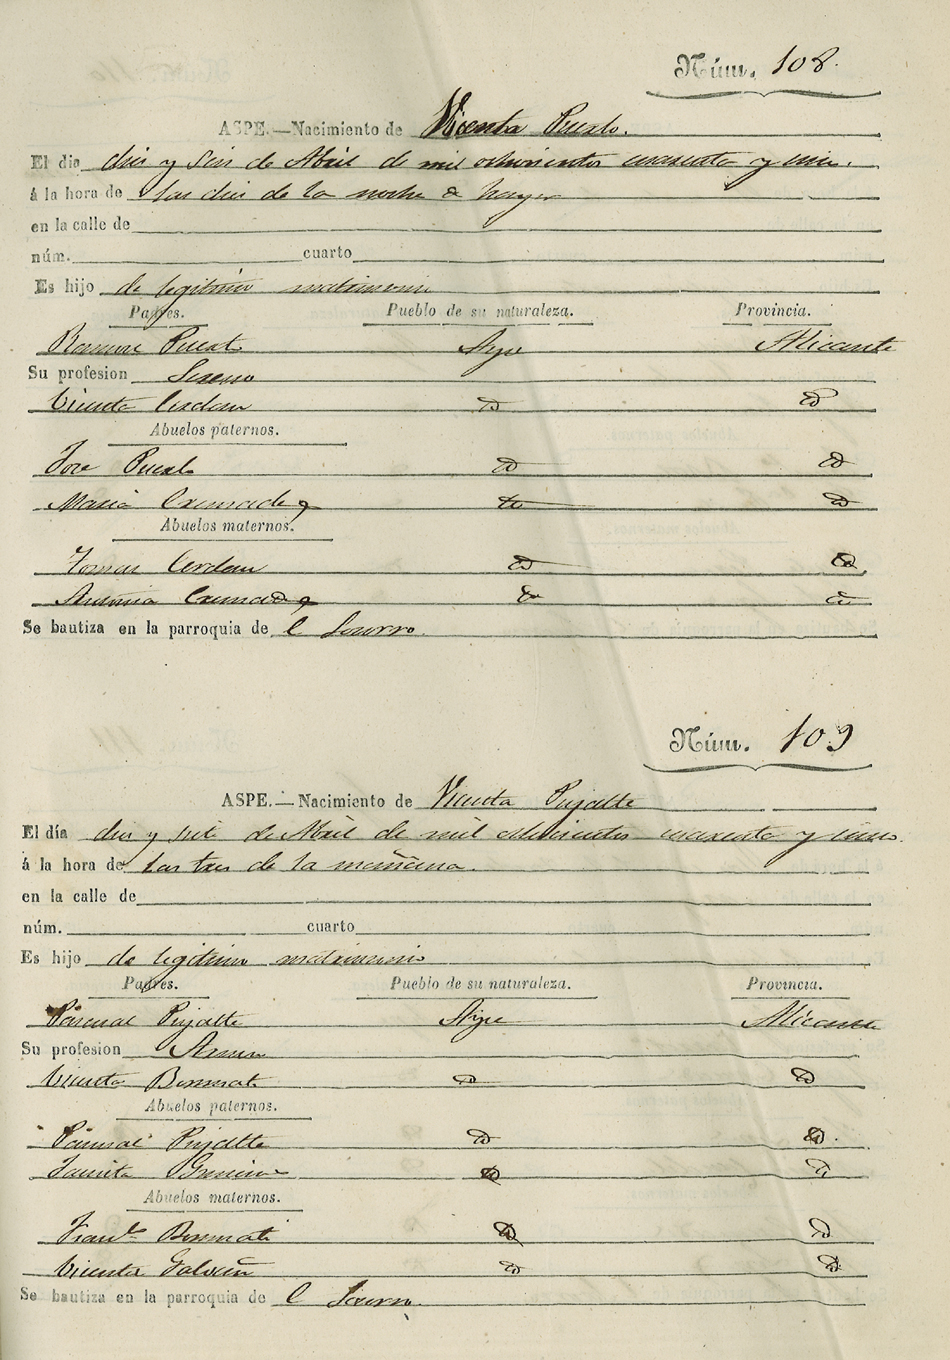 Núm. 108.
ASPE.—Nacimiento de Vicenta Puerto.
El dia diez y seis de Abril de mil ochocientos cuarenta y uno.
á la hora de las diez de la noche de
en la calle de
núm. cuarto
Es hijo de legitimo matrimonio
Padres. Pueblo de su naturaleza. Provincia.
Puerto Aspe Alicante
Su profesion Sereno
Vicenta Cerdan id id
Abuelos paternos.
Jose Puerto id id
Maria Cremades id id
Abuelos maternos.
Tomas Cerdan id id
Antonia Cremades id id
Se bautiza en la parroquia de el Socorro.
Núm. 109
ASPE.—Nacimiento de Vicenta Pujalte
El día diez y siete de Abril de mil ochocientos cuarenta y uno.
á la hora de las tres de la mañana.
en la calle de
núm. cuarto
Es hijo de legitimo matrimonio
Padres. Pueblo de su naturaleza. Provincia.
Pascual Pujalte Aspe Alicante
Su profesion
Vicenta id id
Abuelos paternos.
Pascual Pujalte id id.
id id
Abuelos maternos.
Franco. id id
Vicenta Galvañ id id
Se bautiza en la parroquia de el Socorro.